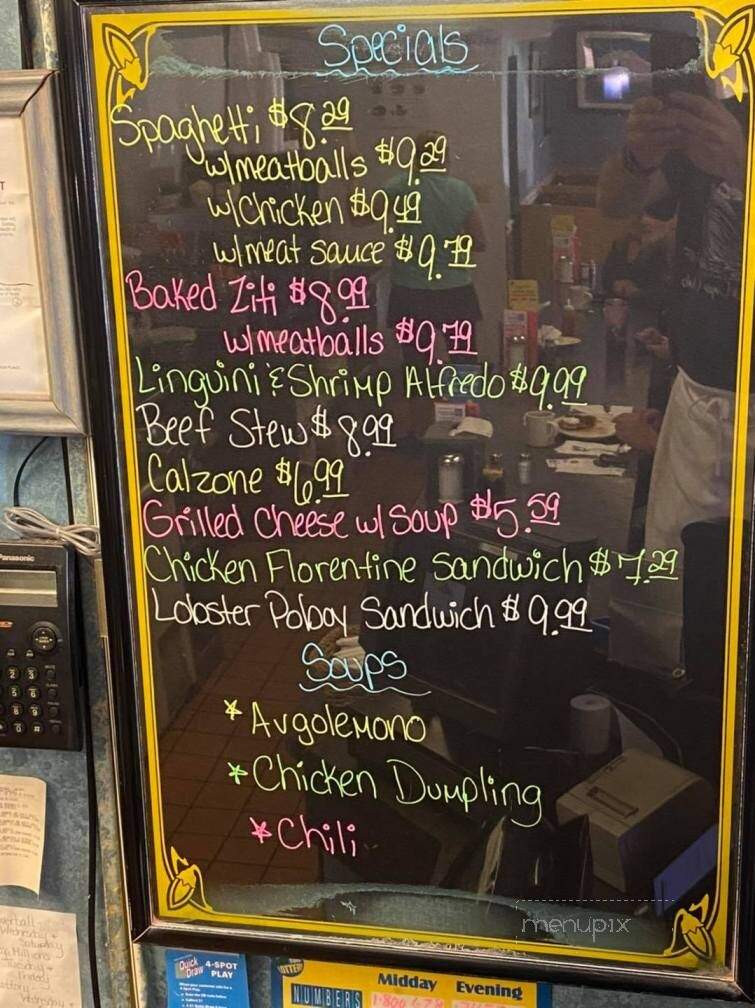 Specials
Spaghetti $8.29
w/meatballs $9.29
w/chicken $9.49
w/meat sauce $9.79
Baked Ziti $8.99
w/meatballs $9.79
Linguini & Shrimp Alfredo $9.99
Beef Stew $8.99
Calzone $6.99
Grilled Cheese w/ Soup $5.59
Chicken Florentine Sandwich $7.29
Lobster Poboy Sandwich $9.99
Soups
* Avgolemono
* Chicken Dumpling
* Chili
menupix
Panasonic
Quick Draw 4-SPOT PLAY
NUMBERS Midday Evening